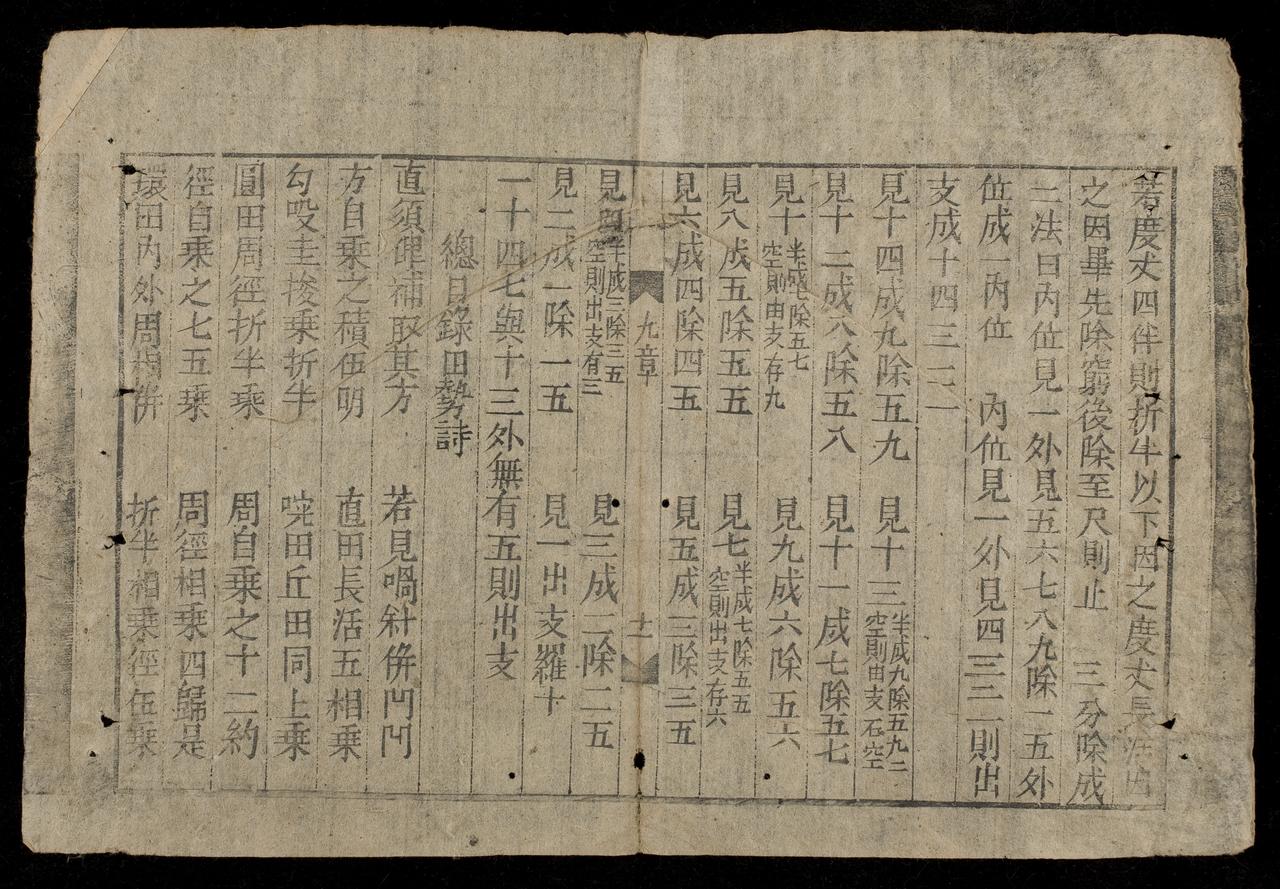 若度丈四伴則折半以下因之度丈長活因
之因畢先除窮後除至尺則止　三分除成
二法曰內位見一外見五六七八九除一五外
位成一內位　內位見一外見四三二則出
支成十四三二一
見十四成九除五九　見十三半成九除五九二空則由支石空
見十二成六除五八　見十一成七除五七
見十半成七除五七空則由支存九　見九成六除五六
見八成五除五五　見七半成七除五五空則出支存六
見六成四除四五　見五成三除三五
九章　十一
見四半成三除三五空則出支有三　見三成二除二五
見二成一除一五　見一出支羅十
一十四七與十三外無有五則出支
總目錄田勢詩
直須俾補取其方　若見喎斜併凹凹
方自乘之積伍明　直田長活五相乘
勾股圭梭乘折半　田丘田同上乘
圓田周徑折半乘　周自乘之十二約
徑自乘之七五乘　周徑相乘四歸是
環田內外周 併　折半相乘徑伍乘